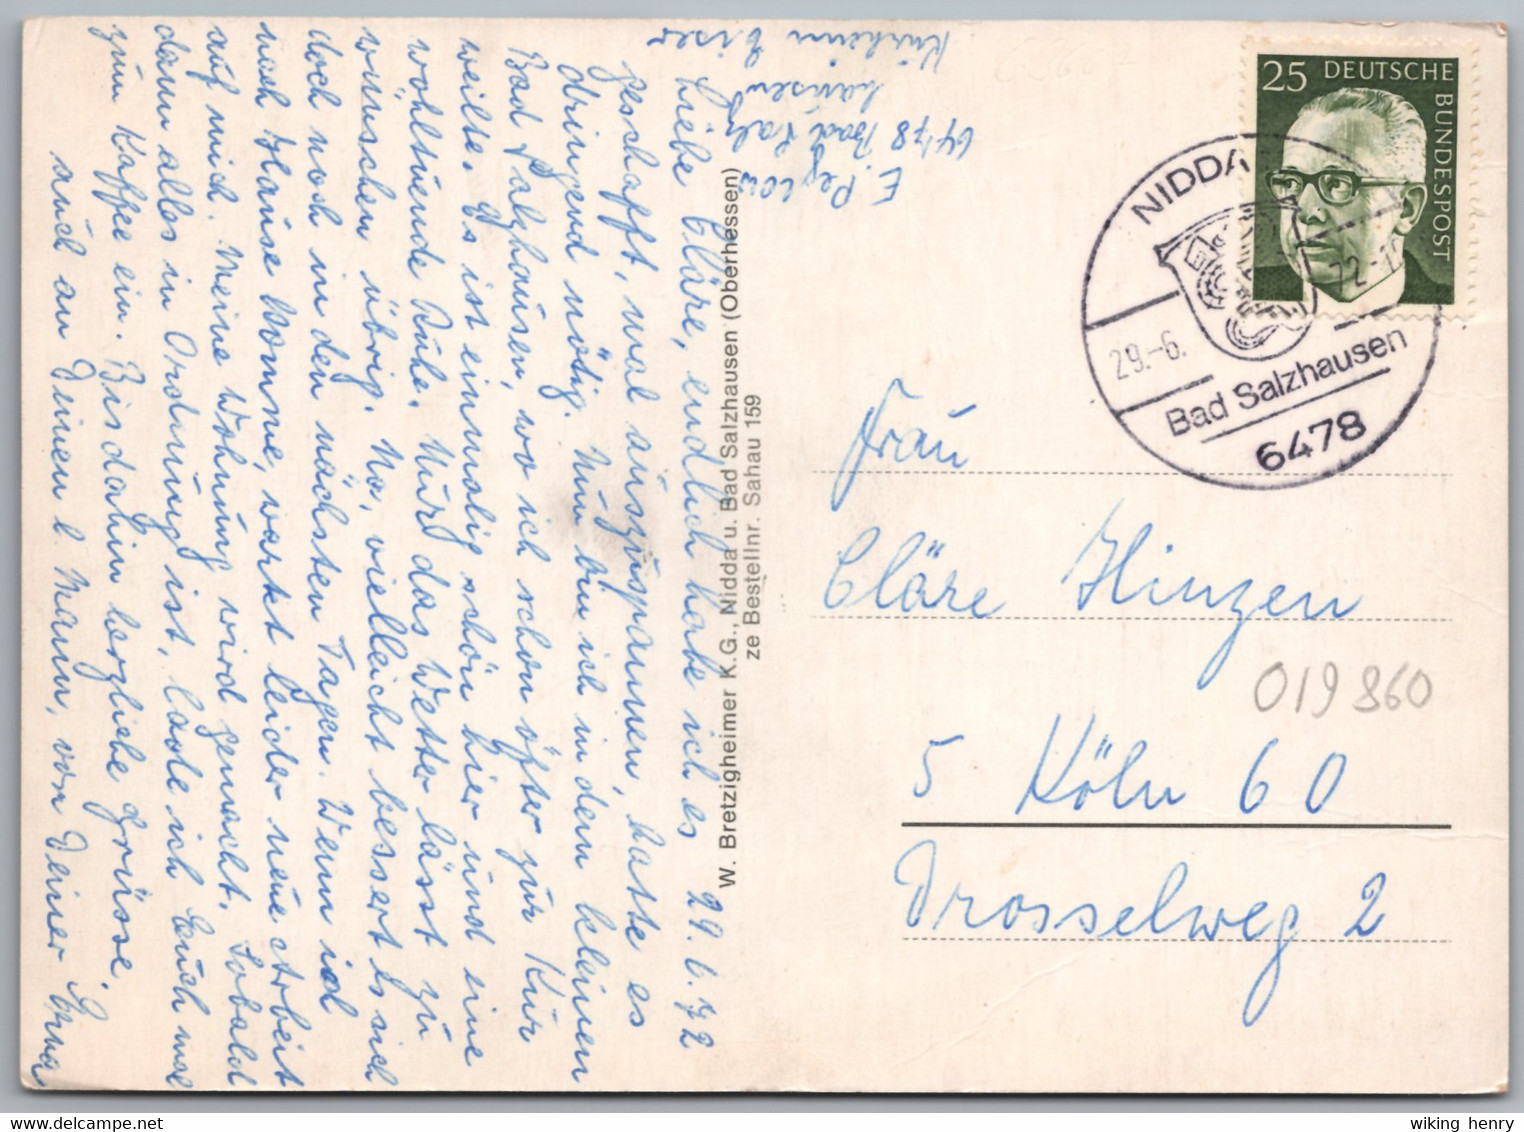 29.6.72
Liebe Cläre, endlich habe ich es
geschafft, mal auszuspannen, hatte es
dringend nötig. Nun bin ich in dem kleinen
Bad Salzhausen, wo ich schon öfter zur Kur
weilte. Es ist einmalig schön hier und eine
wohltuende Ruhe. Nur das Wetter lässt zu
wünschen übrig. Na, vielleicht bessert es sich
doch noch in den nächsten Tagen. Wenn ich
nach Hause komme, wartet leider neue Arbeit
auf mich. Meine Wohnung wird gemacht. Sobald
dann alles in Ordnung ist, lade ich Euch mal
zum Kaffee ein. Bis dahin herzliche Grüsse,
auch an Deinen l. Mann, von Deiner Erna
E. Peglow
6478 Bad Salz
hausen
Kurheim
W. Bretzigheimer K.G., Nidda u. Bad Salzhausen (Oberhessen)
ze Bestellnr. Sahau 159
25 DEUTSCHE
BUNDESPOST
NIDDA
29.-6.
72.-1
Bad Salzhausen
6478
Frau
Cläre Hinzen
019860
5 Köln 60
Drosselweg 2
wiking henry